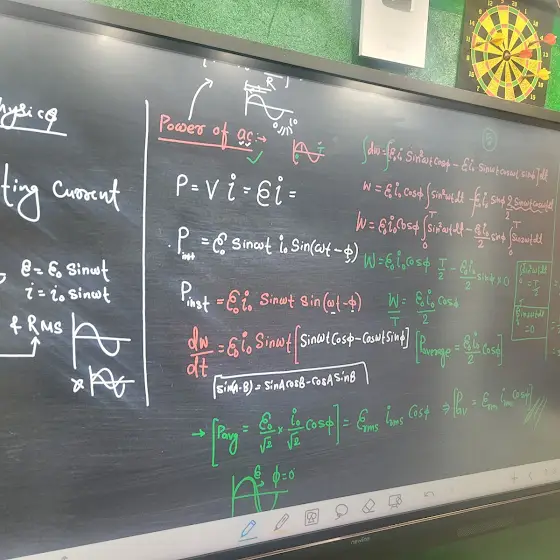 hysics
ting Current
e = ε₀ Sinωt
i = i₀ sinωt
& RMS
R
Power of ac :→
P = V i = e i =
P_inst = ε₀ Sinωt i₀ Sin(ωt - φ)
P_inst = ε₀ i₀ Sinωt sin(ωt - φ)
dw/dt = ε₀ i₀ Sinωt [Sinωt Cosφ - Cosωt Sinφ]
Sin(A-B) = SinA CosB - CosA SinB
→ [P_avg = ε₀/√2 × i₀/√2 Cosφ] = ε_rms i_rms Cosφ ⇒ [P_av = ε_rms i_rms Cosφ]
φ = 0
∫dw = ∫[ε₀ i₀ Sin²ωt Cosφ - ε₀ i₀ Sinωt Cosωt Sinφ] dt
W = ε₀ i₀ Cosφ ∫Sin²ωt dt - ∫ε₀ i₀ Sinφ 2 Sinωt Cosωt dt / 2
W = ε₀ i₀ Cosφ ∫₀ᵀ Sin²ωt dt - ε₀ i₀/2 Sinφ ∫₀ᵀ Sin2ωt dt
W = ε₀ i₀ Cosφ T/2 - ε₀ i₀/2 Sinφ × 0
W/T = ε₀ i₀/2 Cosφ
[P_average = ε₀ i₀/2 Cosφ]